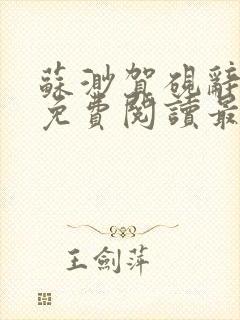 蘇渺賀硯辭
免費閱讀最
王劍萍